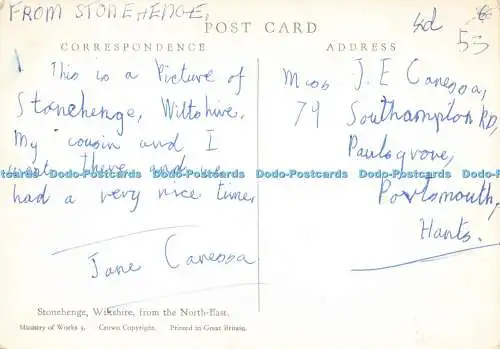 FROM STONEHENGE,
4d
53
POST CARD
CORRESPONDENCE
ADDRESS
This is a Picture of
Stonehenge, Wiltshire.
My cousin and I
went there and we
had a very nice time,
Jane Canessa
Miss J. E Canessa,
79 Southampton RD,
Paulsgrove,
Portsmouth,
Hants.
Dodo-Postcards Dodo-Postcards Dodo-Postcards Dodo-Postcards Dodo-Postcards
Stonehenge, Wiltshire, from the North-East.
Ministry of Works 3. Crown Copyright. Printed in Great Britain.